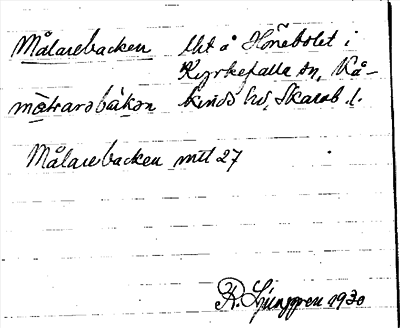 Målarebacken Ut å Hönebolet i
Kyrkefalla sn, Kå-
målarabàkən kinds hd, Skarab. l.
Målarebacken mtl 27
R. Ljunggren 1930